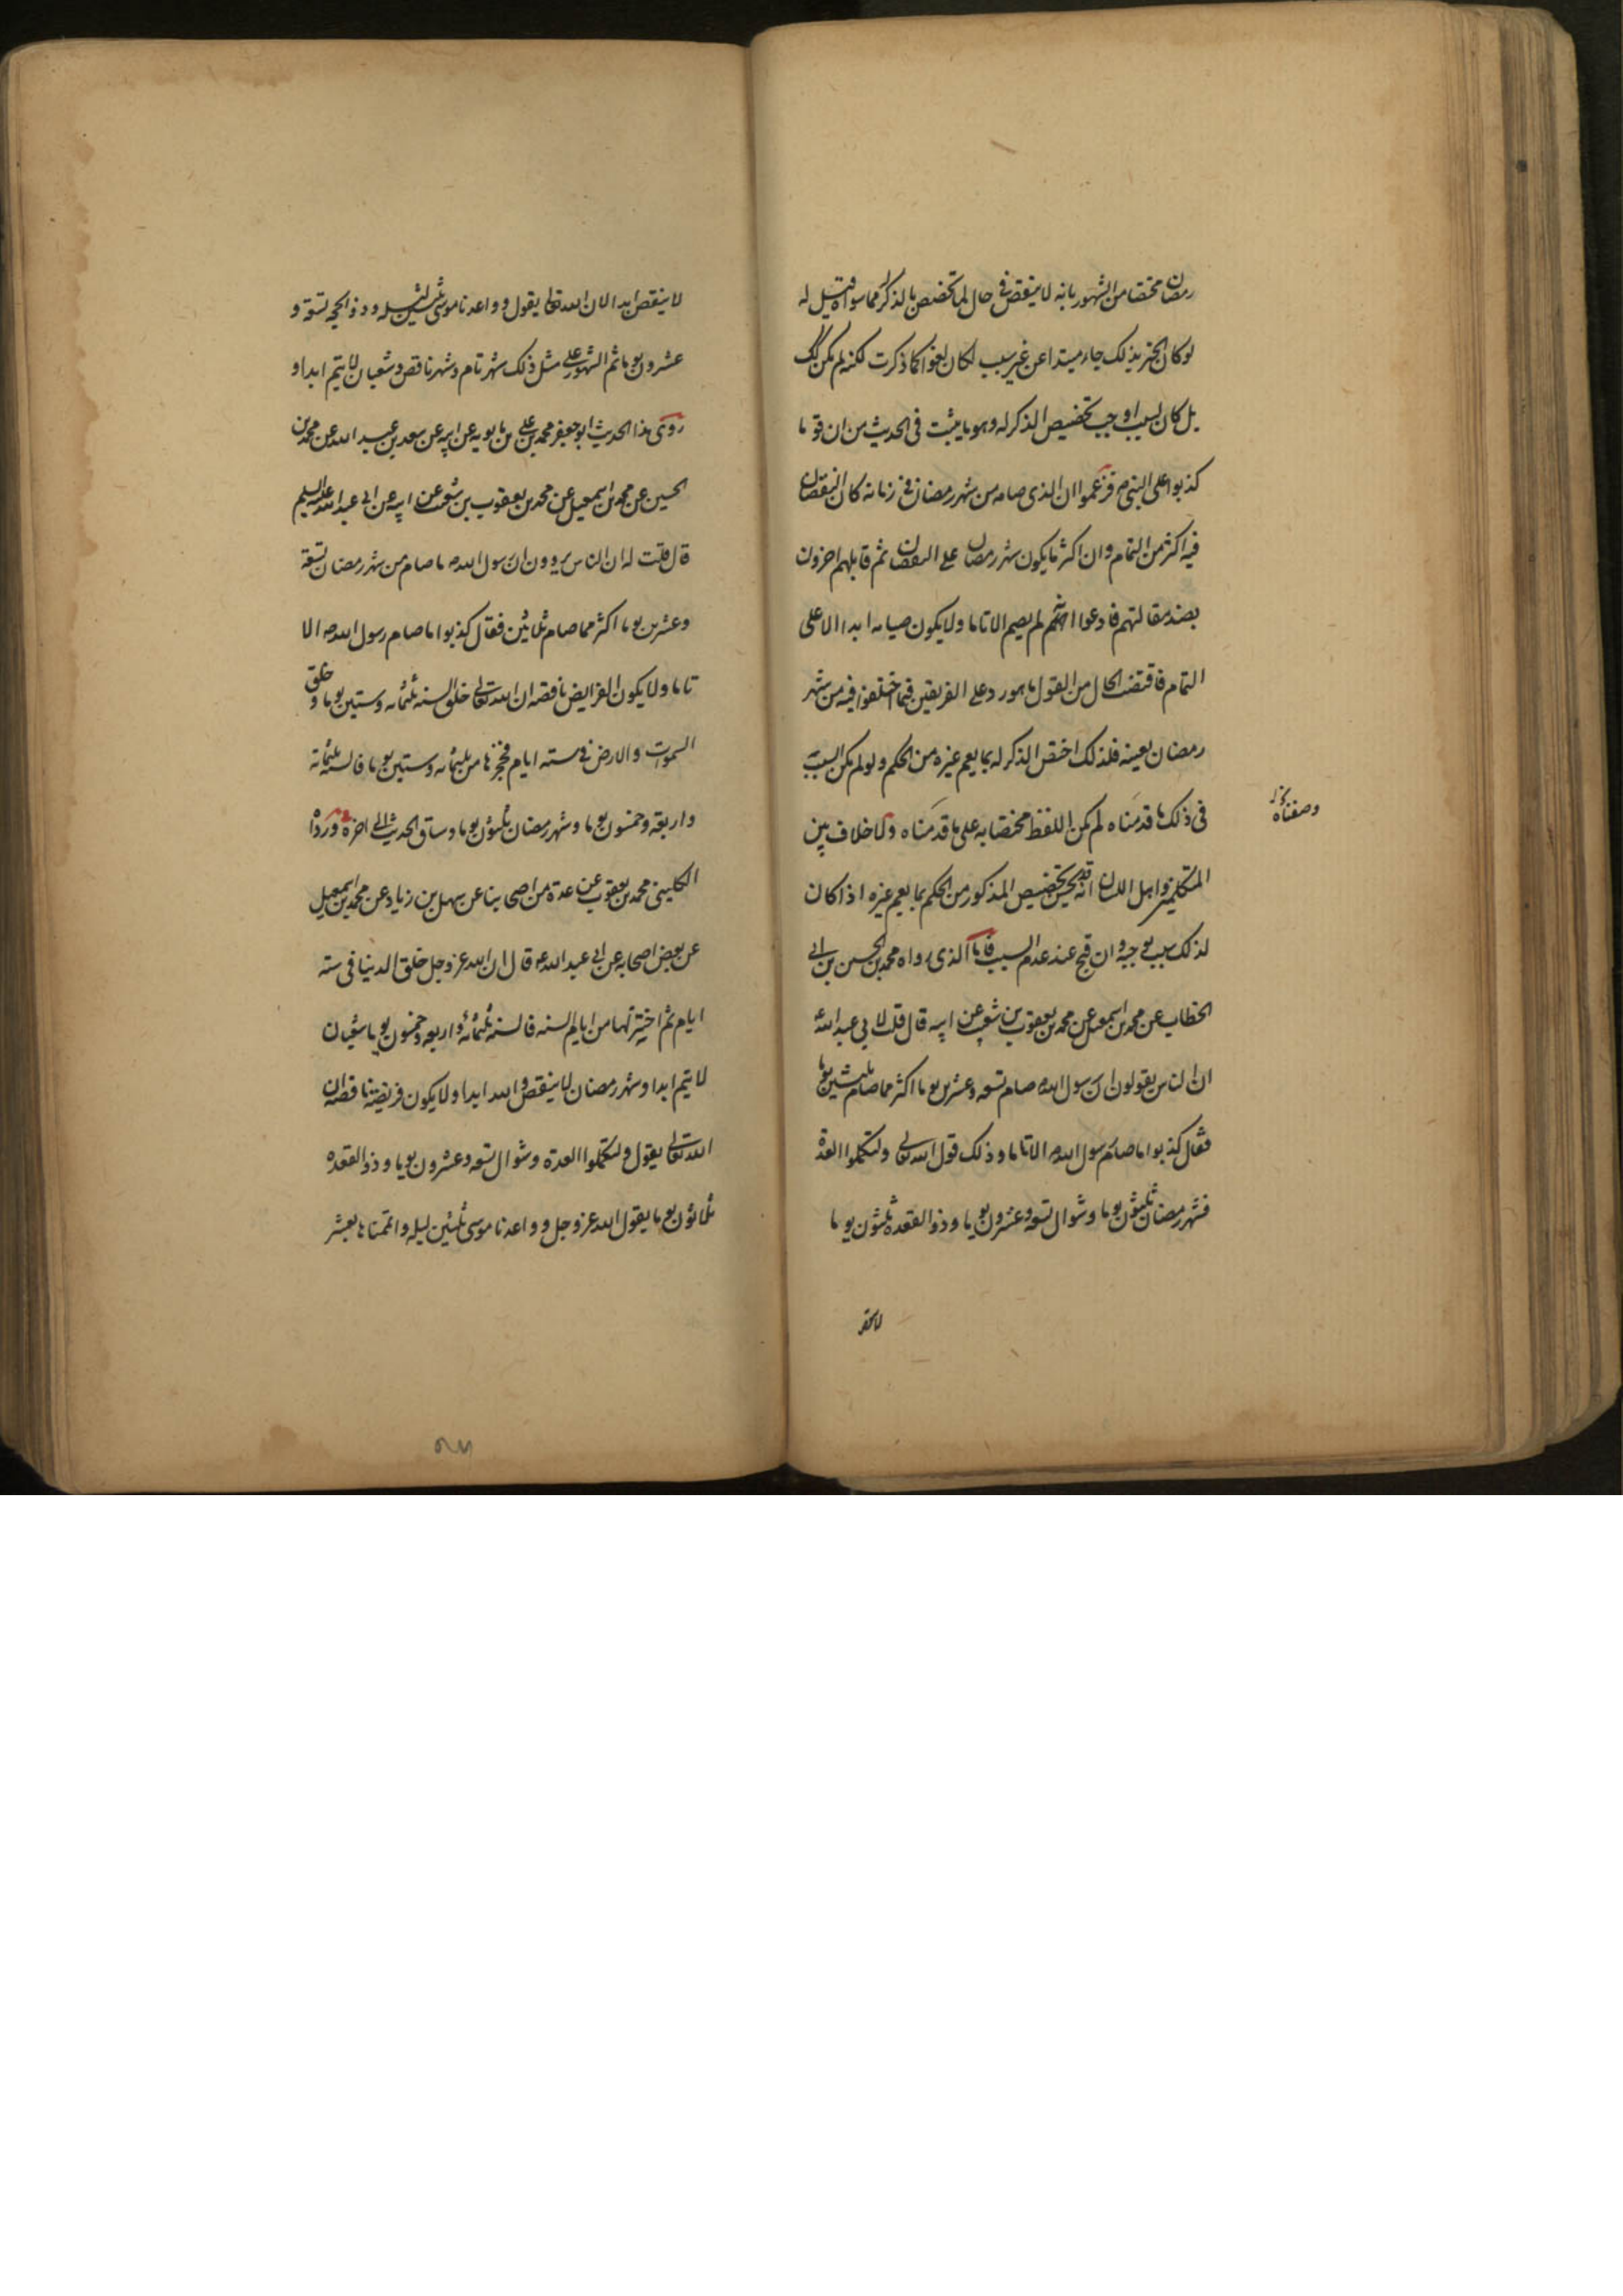 رمضان مختصا من الشهور بانه لا ينقص في حال لما تخصص بالذكر مما سواه قيل له
لو كان الخبر بذلك جاء مبتداء عن غير سبب لكان لغوا كما ذكرت لكنه لم يكن كك
بل كان لسبب اوجب تخصيص الذكر له وهو ما يثبت في الحديث من ان قوما
كذبوا على النبي ص فزعموا ان الذي صامه من شهر رمضان في زمانه كان النقصان
فيه اكثر من التمام وان اكثر ما يكون شهر رمضان على النقصان ثم قابلهم اخرون
بضد مقالتهم فادعوا انهم لم يصم الا تاما ولا يكون صيامه ابدا الا على
التمام فاقتضت الحال من القول ما هو رد على الفريقين فيما اختلفوا فيه من شهر
رمضان بعينه فلذلك اختص الذكر له بما يعم غيره من الحكم ولو لم يكن السبب
في ذلك ما قدمناه لم يكن اللفظ مختصا به على ما قدمناه ولا خلاف بين
وصفناه
المتكلمين واهل اللسان انه قد يحسن تخصيص المذكور من الحكم بما يعم غيره اذا كان
لذلك سبب يوجبه وان قبح عند عدم السبب فاما الذي رواه محمد بن الحسن بن ابي
الخطاب عن محمد بن اسمعيل عن محمد بن يعقوب بن شعيب عن ابيه قال قلت لابي عبد الله ع
ان الناس يقولون ان رسول الله ص صام تسعه وعشرين يوما اكثر مما صام ثلثين يوما
فقال كذبوا ما صام رسول الله ص الا تاما وذلك قول الله تعالى ولتكملوا العدة
فشهر رمضان ثلثون يوما وشوال تسعه وعشرون يوما وذو القعده ثلثون يوما
لا ينقص ابدا لان الله تعالى يقول وواعدنا موسى ثلثين ليله وذو الحجه تسعة و
عشرون يوما ثم الشهور على مثل ذلك شهر تام وشهر ناقص وشعبان لا يتم ابدا و
روى هذا الحديث ابو جعفر محمد بن علي بن بابويه عن ابيه عن سعد بن عبد الله عن محمد بن
الحسين عن محمد بن اسمعيل عن محمد بن يعقوب بن شعيب عن ابيه عن ابي عبد الله عليه السلم
قال قلت له ان الناس يروون ان رسول الله ص ما صام من شهر رمضان تسعة
وعشرين يوما اكثر مما صام ثلاثين فقال كذبوا ما صام رسول الله ص الا
تاما ولا يكون الفرايض ناقصه ان الله تعالى خلق السنه ثلثمائه وستين يوما وخلق
السموات والارض في سته ايام فحجزها من ثلثمائه وستين يوما فالسنه ثلثمائة
واربعة وخمسون يوما وشهر رمضان ثلثون يوما وساق الحديث الى اخره ورواه
الكليني محمد بن يعقوب عن عدة من اصحابنا عن سهل بن زياد عن محمد بن اسمعيل
عن بعض اصحابه عن ابي عبد الله ع قال ان الله عز وجل خلق الدنيا في سته
ايام ثم اختزلها من ايام السنه فالسنه ثلثمائة واربعه وخمسون يوما شعبان
لا يتم ابدا وشهر رمضان لا ينقص والله ابدا ولا يكون فريضة ناقصه ان
الله تعالى يقول ولتكملوا العدة وشوال تسعه وعشرون يوما وذو القعده
ثلاثون يوما يقول الله عز وجل وواعدنا موسى ثلثين ليله واتممناها بعشر